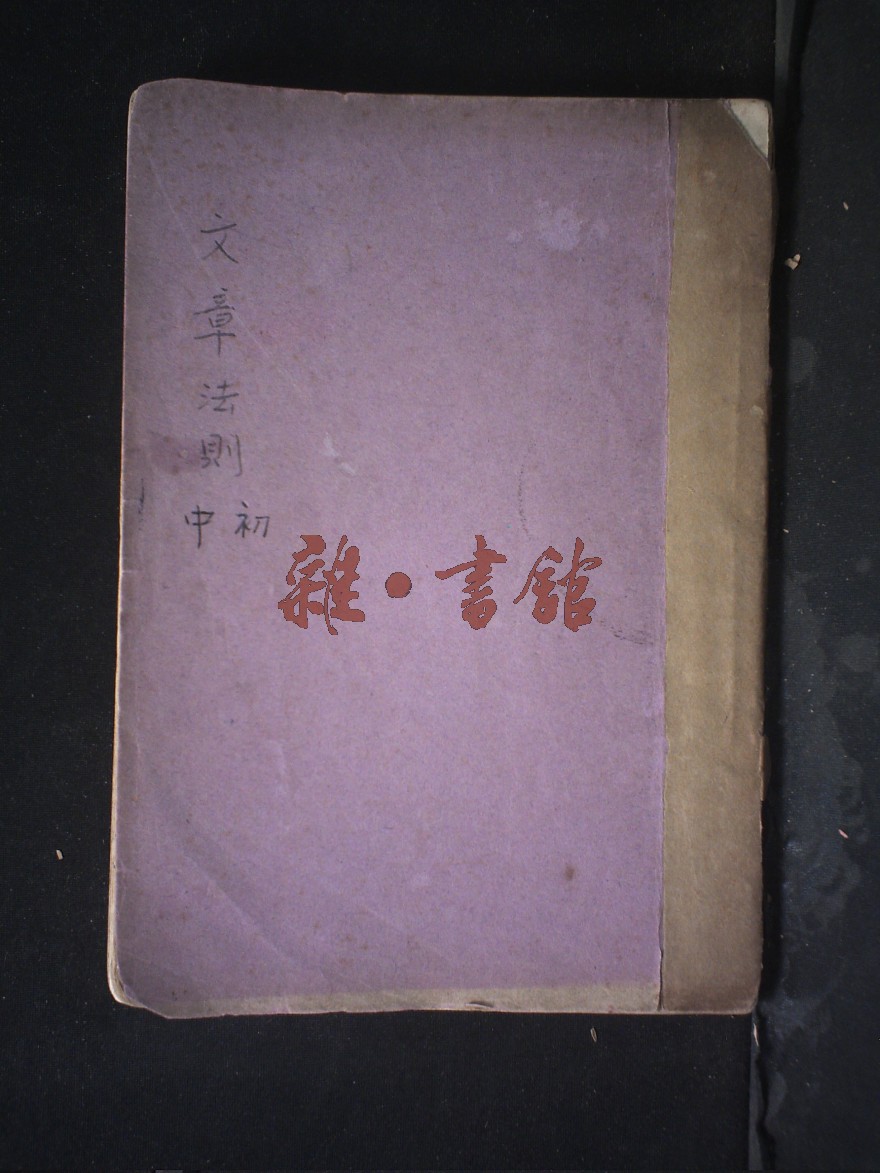 文章法則
初中
雜·書館